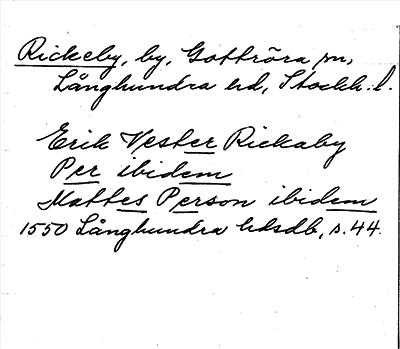 Rickeby, by, Gottröra sn,
Långhundra hd, Stockh. l.
Erik Vester Rickaby
Per ibidem
Mattes Person ibidem
1550 Långhundra hdsdb, s. 44.